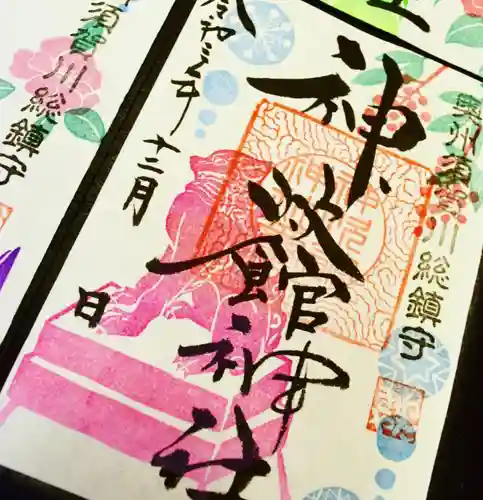 奥州須賀川総鎮守
神炊館神社
令和三年
十二月
日
須賀川総鎮守